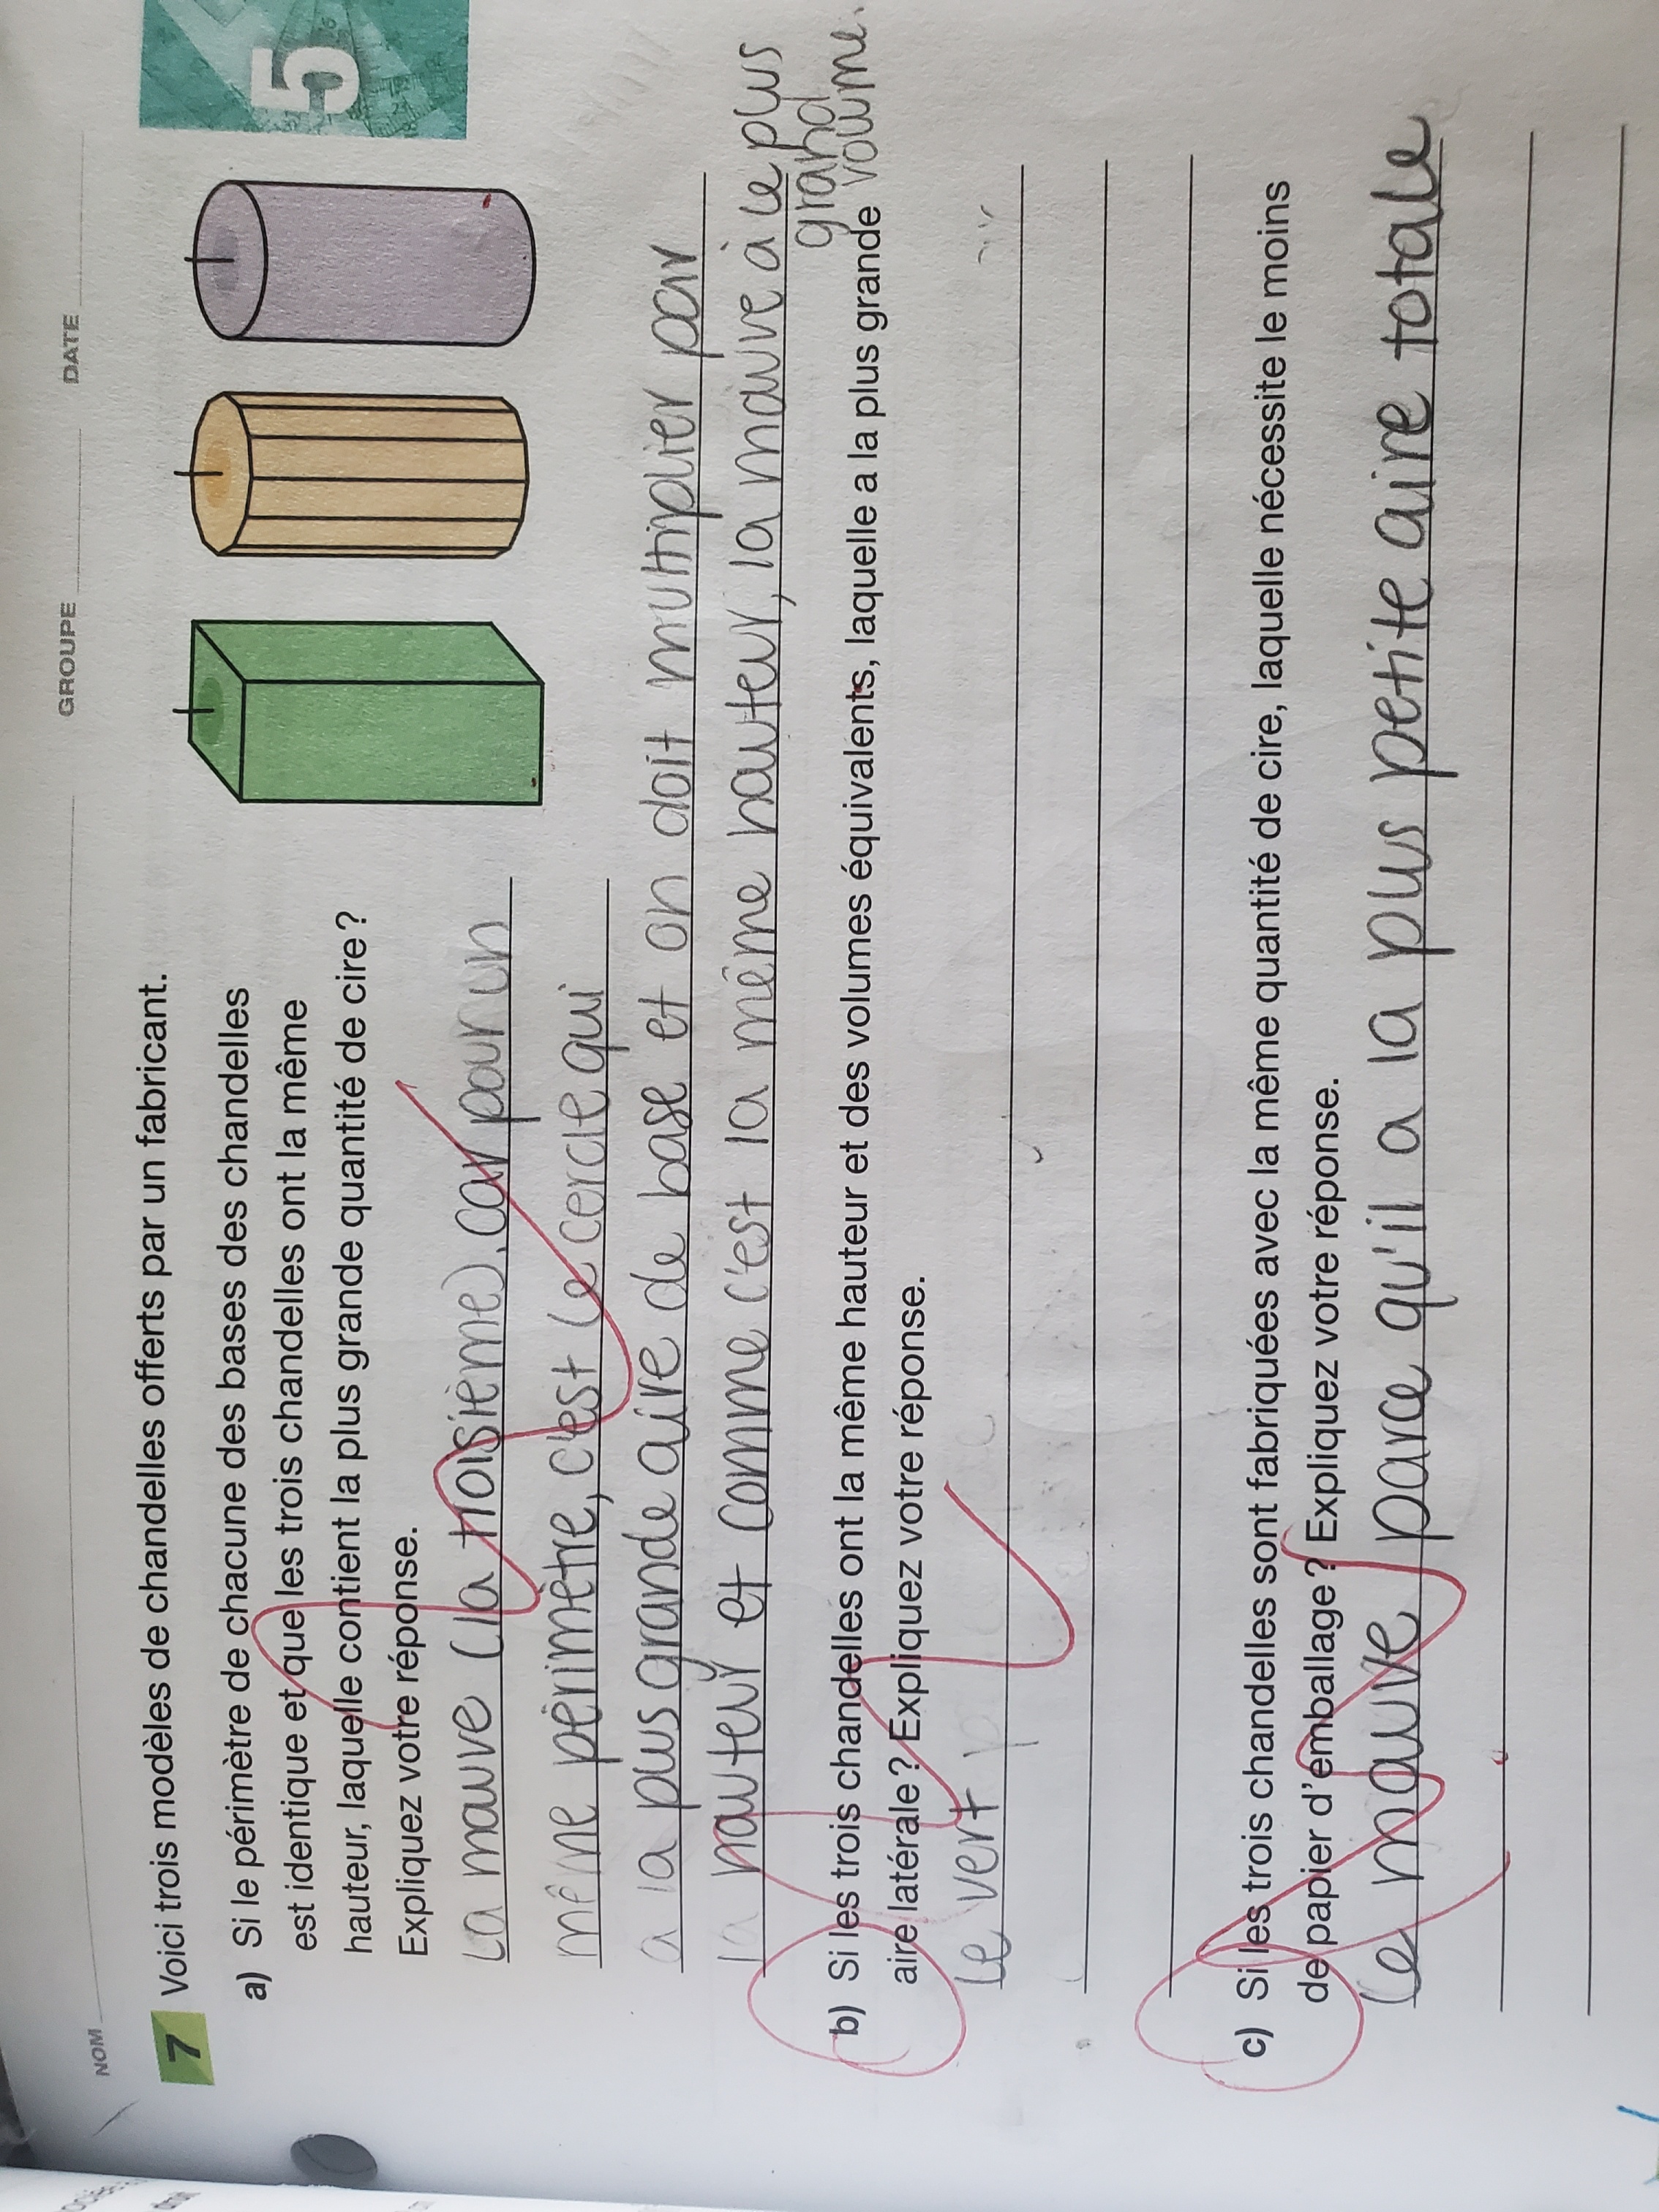 NOM GROUPE DATE
5
7 Voici trois modèles de chandelles offerts par un fabricant.
a) Si le périmètre de chacune des bases des chandelles
est identique et que les trois chandelles ont la même
hauteur, laquelle contient la plus grande quantité de cire?
Expliquez votre réponse.
La mauve (la troisième), car pour un
même périmètre, c'est le cercle qui
a la plus grande aire de base et on doit multiplier par
la hauteur et comme c'est la même hauteur, la mauve à le plus
grand
volume.
b) Si les trois chandelles ont la même hauteur et des volumes équivalents, laquelle a la plus grande
aire latérale? Expliquez votre réponse.
Le vert
c) Si les trois chandelles sont fabriquées avec la même quantité de cire, laquelle nécessite le moins
de papier d'emballage? Expliquez votre réponse.
Le mauve parce qu'il a la plus petite aire totale